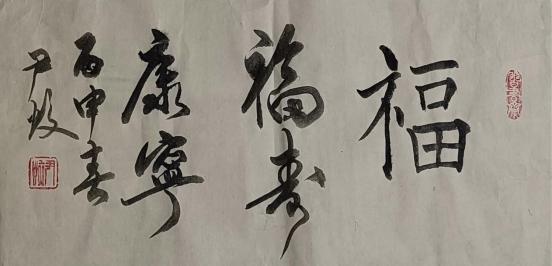 福
福寿
康寧
丙申春
尹牧